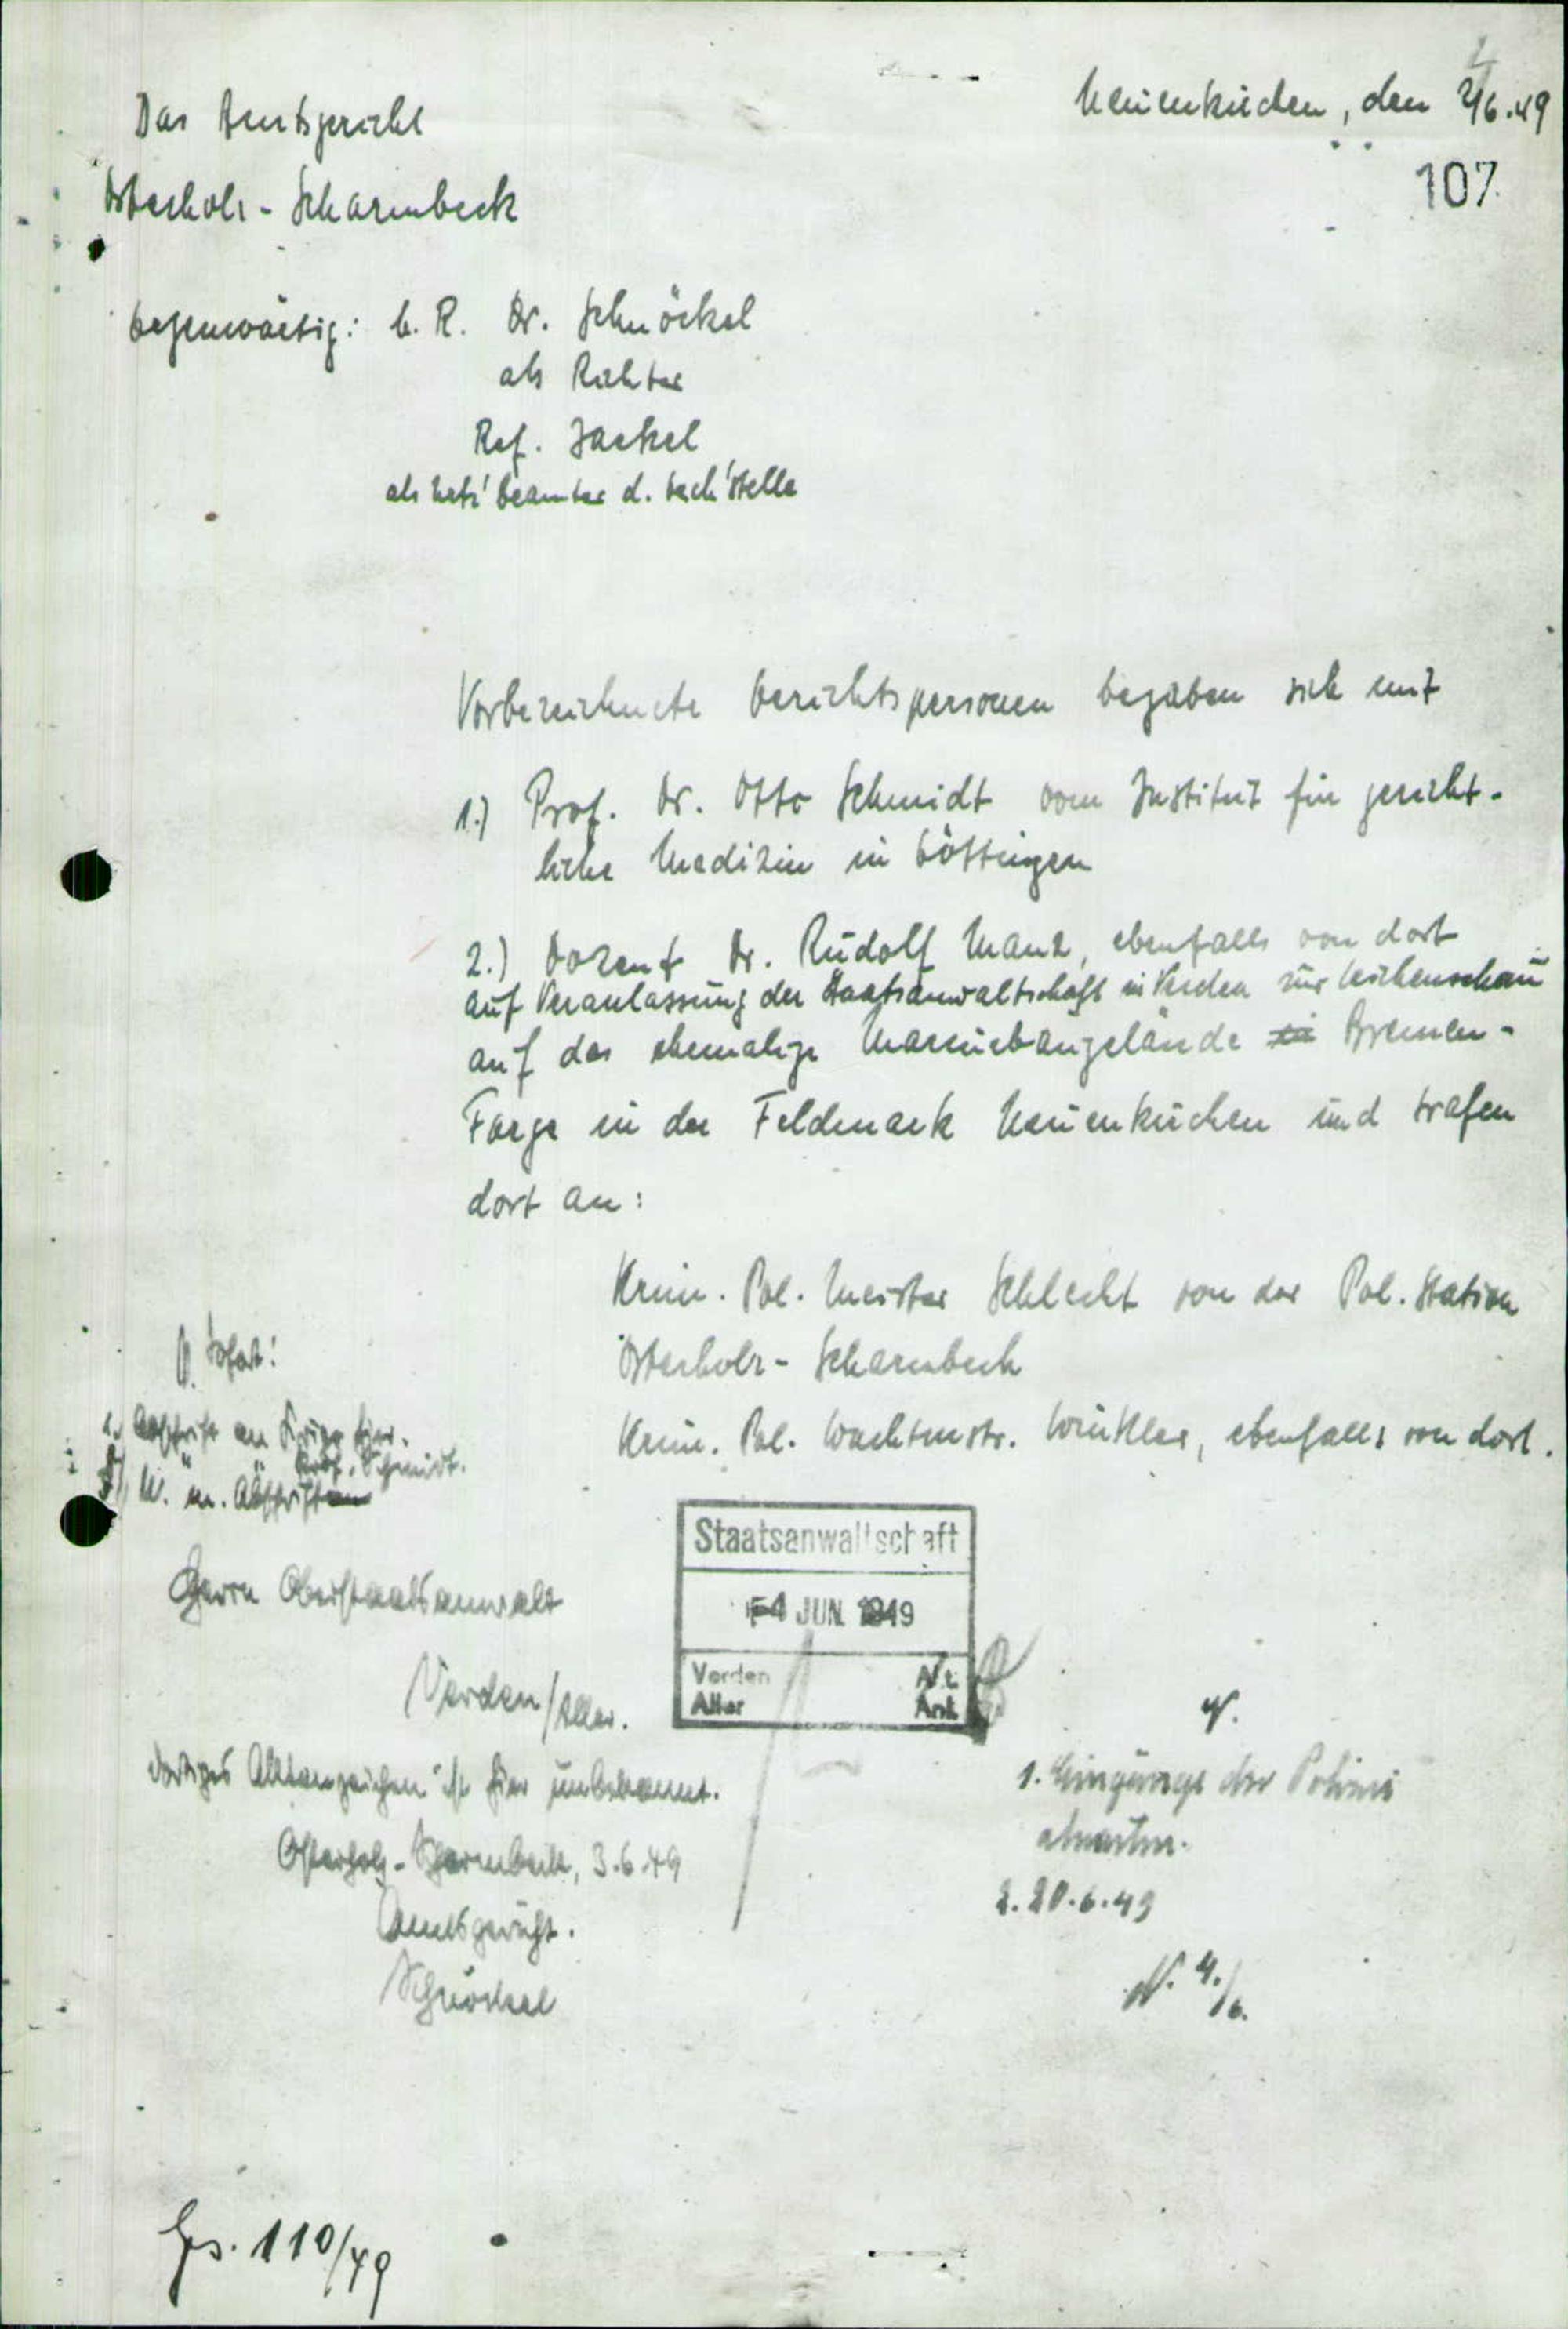 Neuenkirchen, den 2/6.49
107
Das Amtsgericht
Osterholz-Scharmbeck
Gegenwärtig: G. R. Dr. Schnöckel
als Richter
Ref. Jackel
als Urk' beamter d. Gesch'stelle
Vorbezeichnete Gerichtspersonen begaben sich mit
1.) Prof. Dr. Otto Schmidt vom Institut für gericht-
liche Medizin in Göttingen
2.) Dozent Dr. Rudolf Manz, ebenfalls von dort
auf Veranlassung der Staatsanwaltschaft in Verden zur Leichenschau
auf das ehemalige Marinebaugelände Bremen-
Farge in der Feldmark Neuenkirchen und trafen
dort an:
Krim. Pol. Meister Schlecht von der Pol. Station
Osterholz-Scharmbeck
Krim. Pol. Wachtmstr. Winkler, ebenfalls von dort.
Sofort:
1. Abschrift an
Prof. Schmidt.
U. m.
Herrn Oberstaatsanwalt
Verden/Aller.
Dortiges Aktenzeichen ist hier unbekannt.
Osterholz-Scharmbeck, 3.6.49
Amtsgericht.
Schnöckel
Staatsanwaltschaft
-4 JUN. 1949
Verden
Aller
Anl.
V.
1. Eingänge der Polizei
abwarten.
2. 20.6.49
N. 4./6.
Gs. 110/49